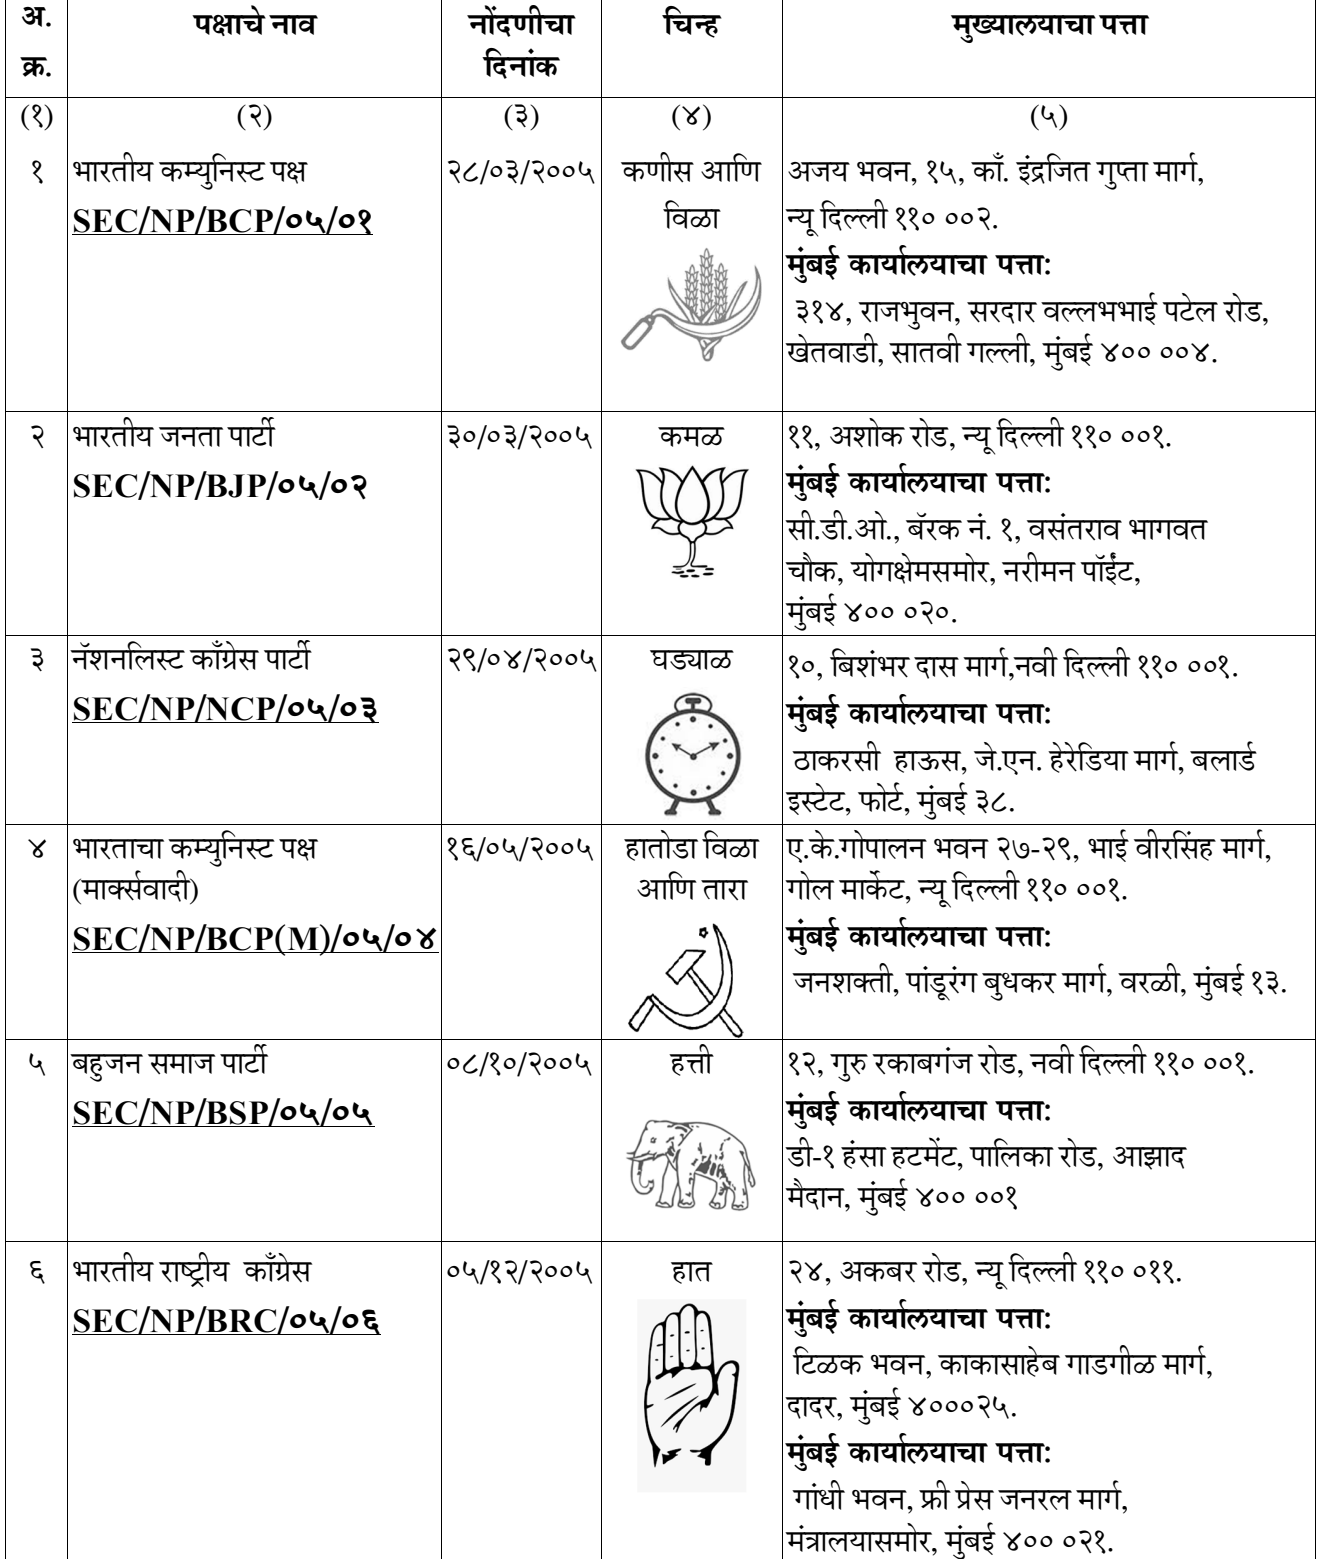 अ.
क्र.
पक्षाचे नाव
नोंदणीचा
दिनांक
चिन्ह
मुख्यालयाचा पत्ता
(१)
(२)
(३)
(४)
(५)
१
भारतीय कम्युनिस्ट पक्ष
SEC/NP/BCP/०५/०१
२८/०३/२००५
कणीस आणि
विळा
अजय भवन, १५, काँ. इंद्रजित गुप्ता मार्ग,
न्यू दिल्ली ११० ००२.
मुंबई कार्यालयाचा पत्ता:
३१४, राजभुवन, सरदार वल्लभभाई पटेल रोड,
खेतवाडी, सातवी गल्ली, मुंबई ४०० ००४.
२
भारतीय जनता पार्टी
SEC/NP/BJP/०५/०२
३०/०३/२००५
कमळ
११, अशोक रोड, न्यू दिल्ली ११० ००१.
मुंबई कार्यालयाचा पत्ता:
सी.डी.ओ., बॅरक नं. १, वसंतराव भागवत
चौक, योगक्षेमसमोर, नरीमन पॉईंट,
मुंबई ४०० ०२०.
३
नॅशनलिस्ट काँग्रेस पार्टी
SEC/NP/NCP/०५/०३
२९/०४/२००५
घड्याळ
१०, बिशंभर दास मार्ग,नवी दिल्ली ११० ००१.
मुंबई कार्यालयाचा पत्ता:
ठाकरसी हाऊस, जे.एन. हेरेडिया मार्ग, बलार्ड
इस्टेट, फोर्ट, मुंबई ३८.
४
भारताचा कम्युनिस्ट पक्ष
(मार्क्सवादी)
SEC/NP/BCP(M)/०५/०४
१६/०५/२००५
हातोडा विळा
आणि तारा
ए.के.गोपालन भवन २७-२९, भाई वीरसिंह मार्ग,
गोल मार्केट, न्यू दिल्ली ११० ००१.
मुंबई कार्यालयाचा पत्ता:
जनशक्ती, पांडूरंग बुधकर मार्ग, वरळी, मुंबई १३.
५
बहुजन समाज पार्टी
SEC/NP/BSP/०५/०५
०८/१०/२००५
हत्ती
१२, गुरु रकाबगंज रोड, नवी दिल्ली ११० ००१.
मुंबई कार्यालयाचा पत्ता:
डी-१ हंसा हटमेंट, पालिका रोड, आझाद
मैदान, मुंबई ४०० ००१
६
भारतीय राष्ट्रीय काँग्रेस
SEC/NP/BRC/०५/०६
०५/१२/२००५
हात
२४, अकबर रोड, न्यू दिल्ली ११० ०११.
मुंबई कार्यालयाचा पत्ता:
टिळक भवन, काकासाहेब गाडगीळ मार्ग,
दादर, मुंबई ४०००२५.
मुंबई कार्यालयाचा पत्ता:
गांधी भवन, फ्री प्रेस जनरल मार्ग,
मंत्रालयासमोर, मुंबई ४०० ०२१.